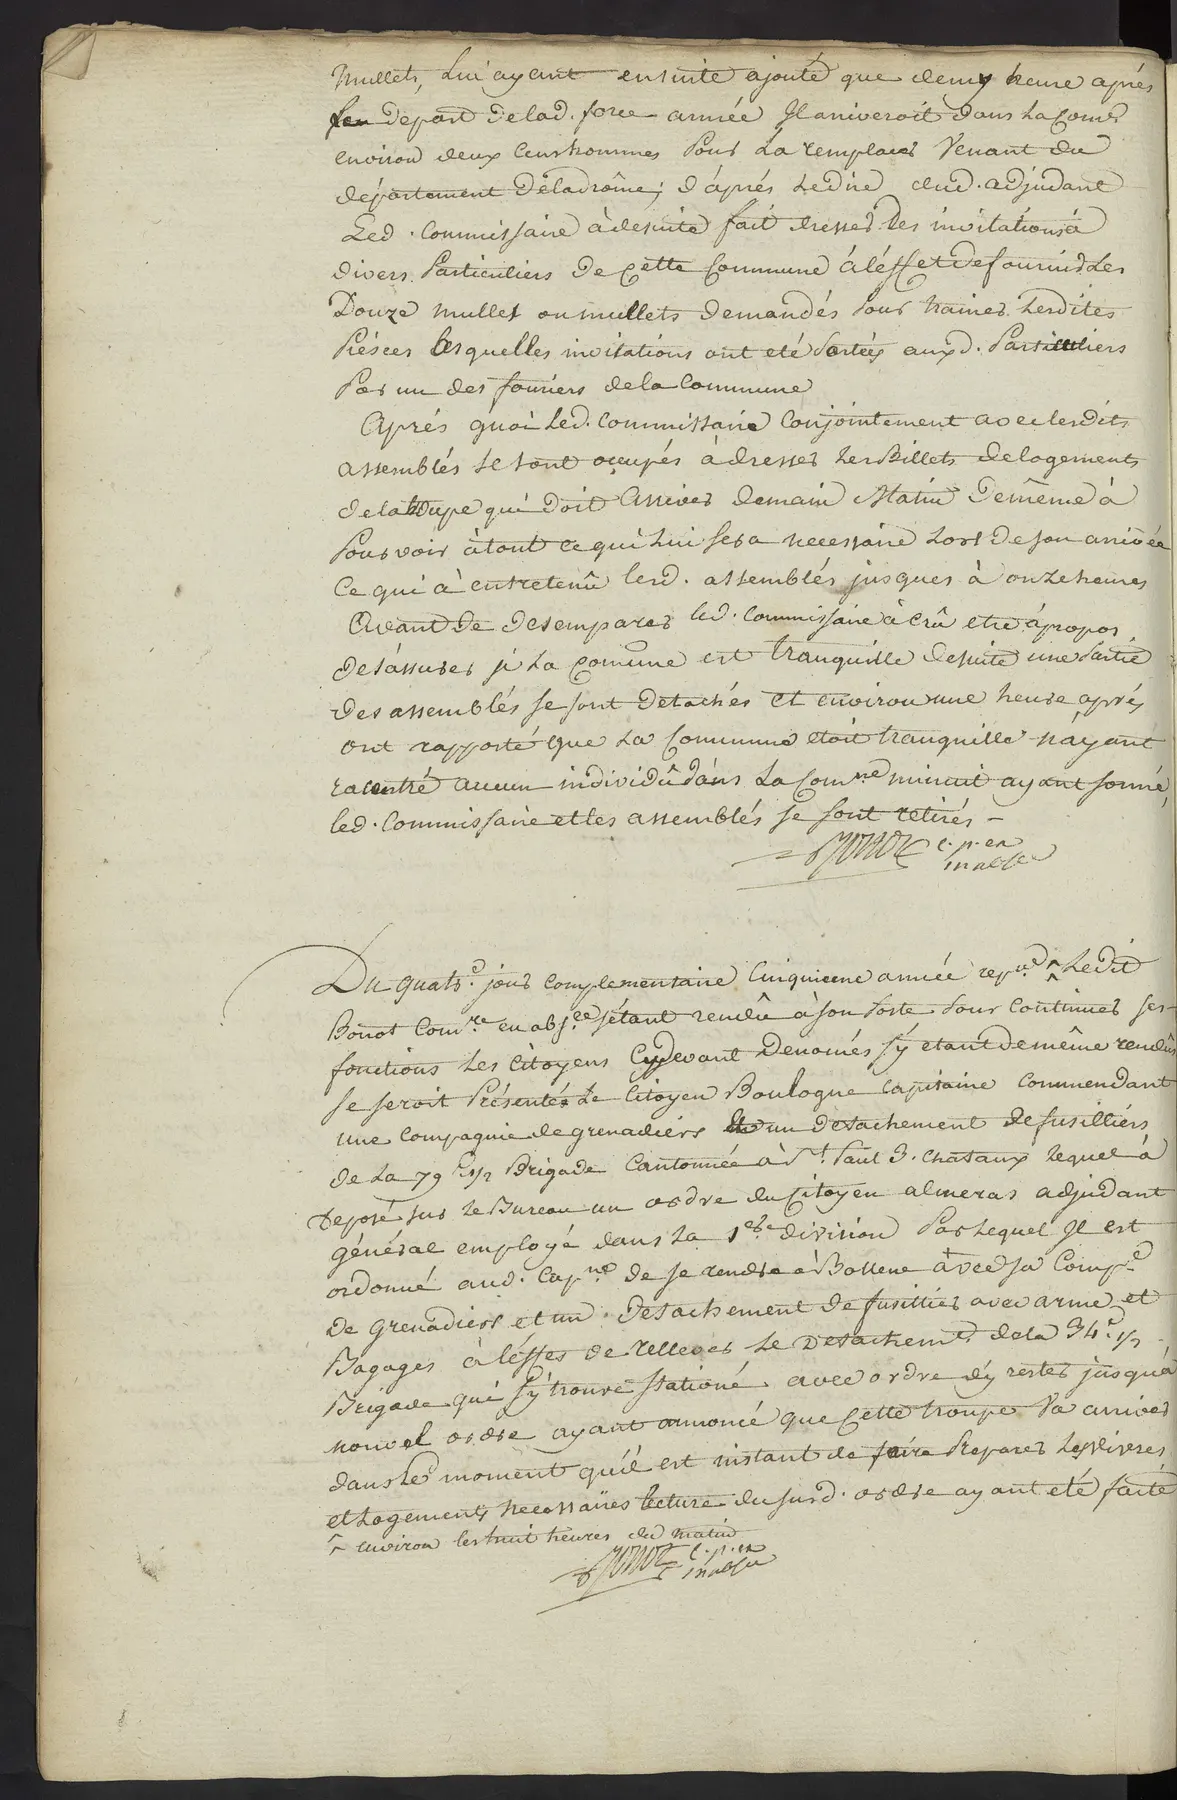 mullets, Lui ayant ensuite ajouté que demy heure aprés
depart delad. force armée Il ariveroit dans La Com.e
environ deux Cens hommes Pour La remplacer Venant du
département Deladrôme; d'áprés Ledire dud. adjudant
Led. commissaire àdesuite fait dresser des invitations à
divers Particuliers De Cette Commune à léffet De fournir Les
Douze mullet ou mullets demandés Pour trainer Lesdites
Piéces lesquelles invitations ont eté Portées auxd. Particuliers
Par un des fouriers dela Commune
Aprés quoi Led. Commissaire Conjointement avec lesdits
assemblés se sont occupés à dresser Les Billets delogements
delatroupe qui Doit Arriver demain Matin Demême à
Pourvoir àtout Ce qui Lui sera necessaire Lors De son arrivée
Ce qui à entretenû lesd. assemblés jusques à onze heures
Avant de desemparer led. Commissaire à crû etre ápropos
desássurer si La Comūne est tranquille desuite une Partie
des assemblés se sont detachés et environ une heure aprés
ont rapporté que La Commune etoit tranquille náyant
racontré aucun individû dans La Com.ne minuit ayant sonné
led. Commissaire et les assemblés se sont retirés -
Bonot c. p. en
inabsce
Du quatr.e jour complementaire Cinquieme année rep.ne ^ Ledit
Bonot Com.re en abs.ce sétant rendû àson Poste Pour Continuer ses
fonctions Les Citoyens Cydevant Denomés s'y etant de même rendûs
se seroit Présenté Le Citoyen Boulogne Capitaine Commendant
une Compagnie de grenadiers un detachement de fusilliérs
de La 79.e 1/2 Brigade Cantonnée à S.t Paul 3. Chataux lequel à
Deposé sur Le Bureau un ordre du Citoyen almeras adjudant
général employé dans La 1ere division Par Lequel Il est
ordonné aud. Cap.ne de se rendre à Bollene avec sa Comp.e
De grenadiers et un detachement de fusilliér avec arme et
Bagages à léffet de rellever Le Detachem.t dela 34.e 1/2
Brigade qui s'y trouve stationé avec ordre d'y rester jusqu'a
nouvel ordre ayant annoncé que Cette troupe Va arriver
dans Le moment qu'il est instant de faire Preparer Les vivres
et Logements necessaires lecture du susd. ordre ayant eté faite
^ environ les huit heures du matin
Bonot c. p. en
inabsce